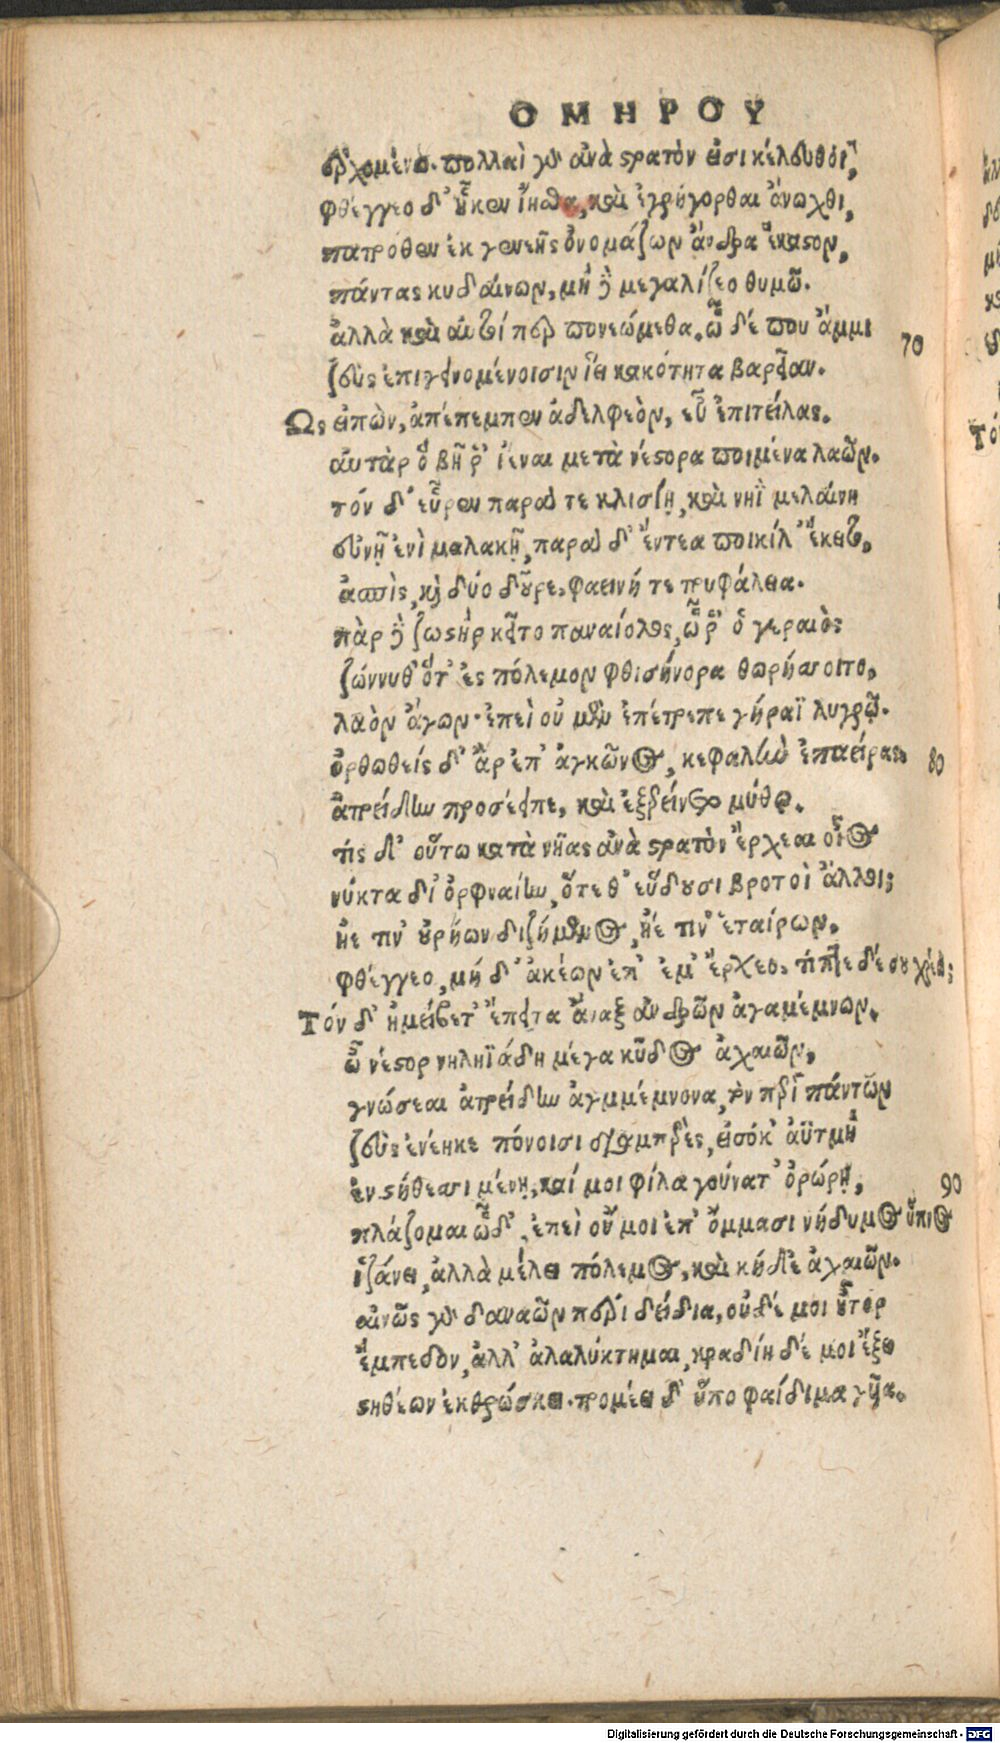 ΟΜΗΡΟΥ
ἐρχομένω. πολλαὶ γὰρ ἀνὰ στρατὸν εἰσι κέλευθοι,
φθέγγεο δ' ᾗκεν ἴησθα, καὶ ἐγρήγορθαι ἄνωχθι,
πατρόθεν ἐκ γενεῆς ὀνομάζων ἄνδρα ἕκαστον,
πάντας κυδαίνων, μὴ δὲ μεγαλίζεο θυμῷ.
ἀλλὰ καὶ αὐτοί περ πονεώμεθα. ὧδέ που ἄμμι 70
ζεὺς ἐπιγεινομένοισιν ἵει κακότητα βαρεῖαν.
Ὣς εἰπὼν, ἀπέπεμπεν ἀδελφεὸν, εὖ ἐπιτείλας.
αὐτὰρ ὁ βῆ ῥ' ἰέναι μετὰ νέστορα ποιμένα λαῶν.
τόν δ' εὗρεν παρά τε κλισίῃ, καὶ νηῒ μελαίνῃ
εὐνῇ ἐνὶ μαλακῇ, παρὰ δ' ἔντεα ποικίλ' ἔκειτο,
ἀσπὶς, καὶ δύο δοῦρε, φαεινή τε τρυφάλεια.
πὰρ δὲ ζωστὴρ κεῖτο παναίολος, ᾧ ῥ' ὁ γεραιὸς
ζώννυθ' ὅτ' ἐς πόλεμον φθισήνορα θωρήσσοιτο,
λαὸν ἄγων· ἐπεὶ οὐ μὲν ἐπέτρεπε γήραϊ λυγρῷ.
ὀρθωθεὶς δ' ἂρ ἐπ' ἀγκῶνος, κεφαλὴν ἐπαείρας, 80
ἀτρείδην προσέειπε, καὶ ἐξερείνετο μύθῳ.
τίς δ' οὕτω κατὰ νῆας ἀνὰ στρατὸν ἔρχεαι οἶος
νύκτα δι' ὀρφναίην, ὅτε θ' εὕδουσι βροτοὶ ἄλλοι;
ἠέ τιν' οὐρήων διζήμενος, ἠέ τιν' ἑταίρων.
φθέγγεο, μή δ' ἀκέων ἐπ' ἐμ' ἔρχεο, τίπτε δέ σε χρεώ;
Τόν δ' ἠμείβετ' ἔπειτα ἄναξ ἀνδρῶν ἀγαμέμνων.
ὦ νέστορ νηληϊάδη μέγα κῦδος ἀχαιῶν,
γνώσεαι ἀτρείδην ἀγαμέμνονα, τὸν περὶ πάντων
ζεὺς ἐνέηκε πόνοισι διαμπερὲς, εἰσόκ' ἀϋτμὴ
ἐν στήθεσσι μένῃ, καί μοι φίλα γούνατ' ὀρώρῃ, 90
πλάζομαι ὧδ', ἐπεὶ οὔ μοι ἐπ' ὄμμασι νήδυμος ὕπνος
ἱζάνει, ἀλλὰ μέλει πόλεμος, καὶ κήδε' ἀχαιῶν.
αἰνῶς γὰρ δαναῶν περὶ δείδια, οὐδέ μοι ἦτορ
ἔμπεδον, ἀλλ' ἀλαλύκτημαι, κραδίη δέ μοι ἔξω
στηθέων ἐκθρώσκει. τρομέει δ' ὕπο φαίδιμα γυῖα.
Digitalisierung gefördert durch die Deutsche Forschungsgemeinschaft - DFG